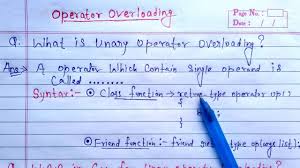 Operator Overloading
Page No.:
Date: / /
Q. What is Unary Operator Overloading?
Ans → A operator which contain single operand is
called ........
Syntax:- • Class function → return-type operator op()
{
}
• Friend function: friend return type op(args list);